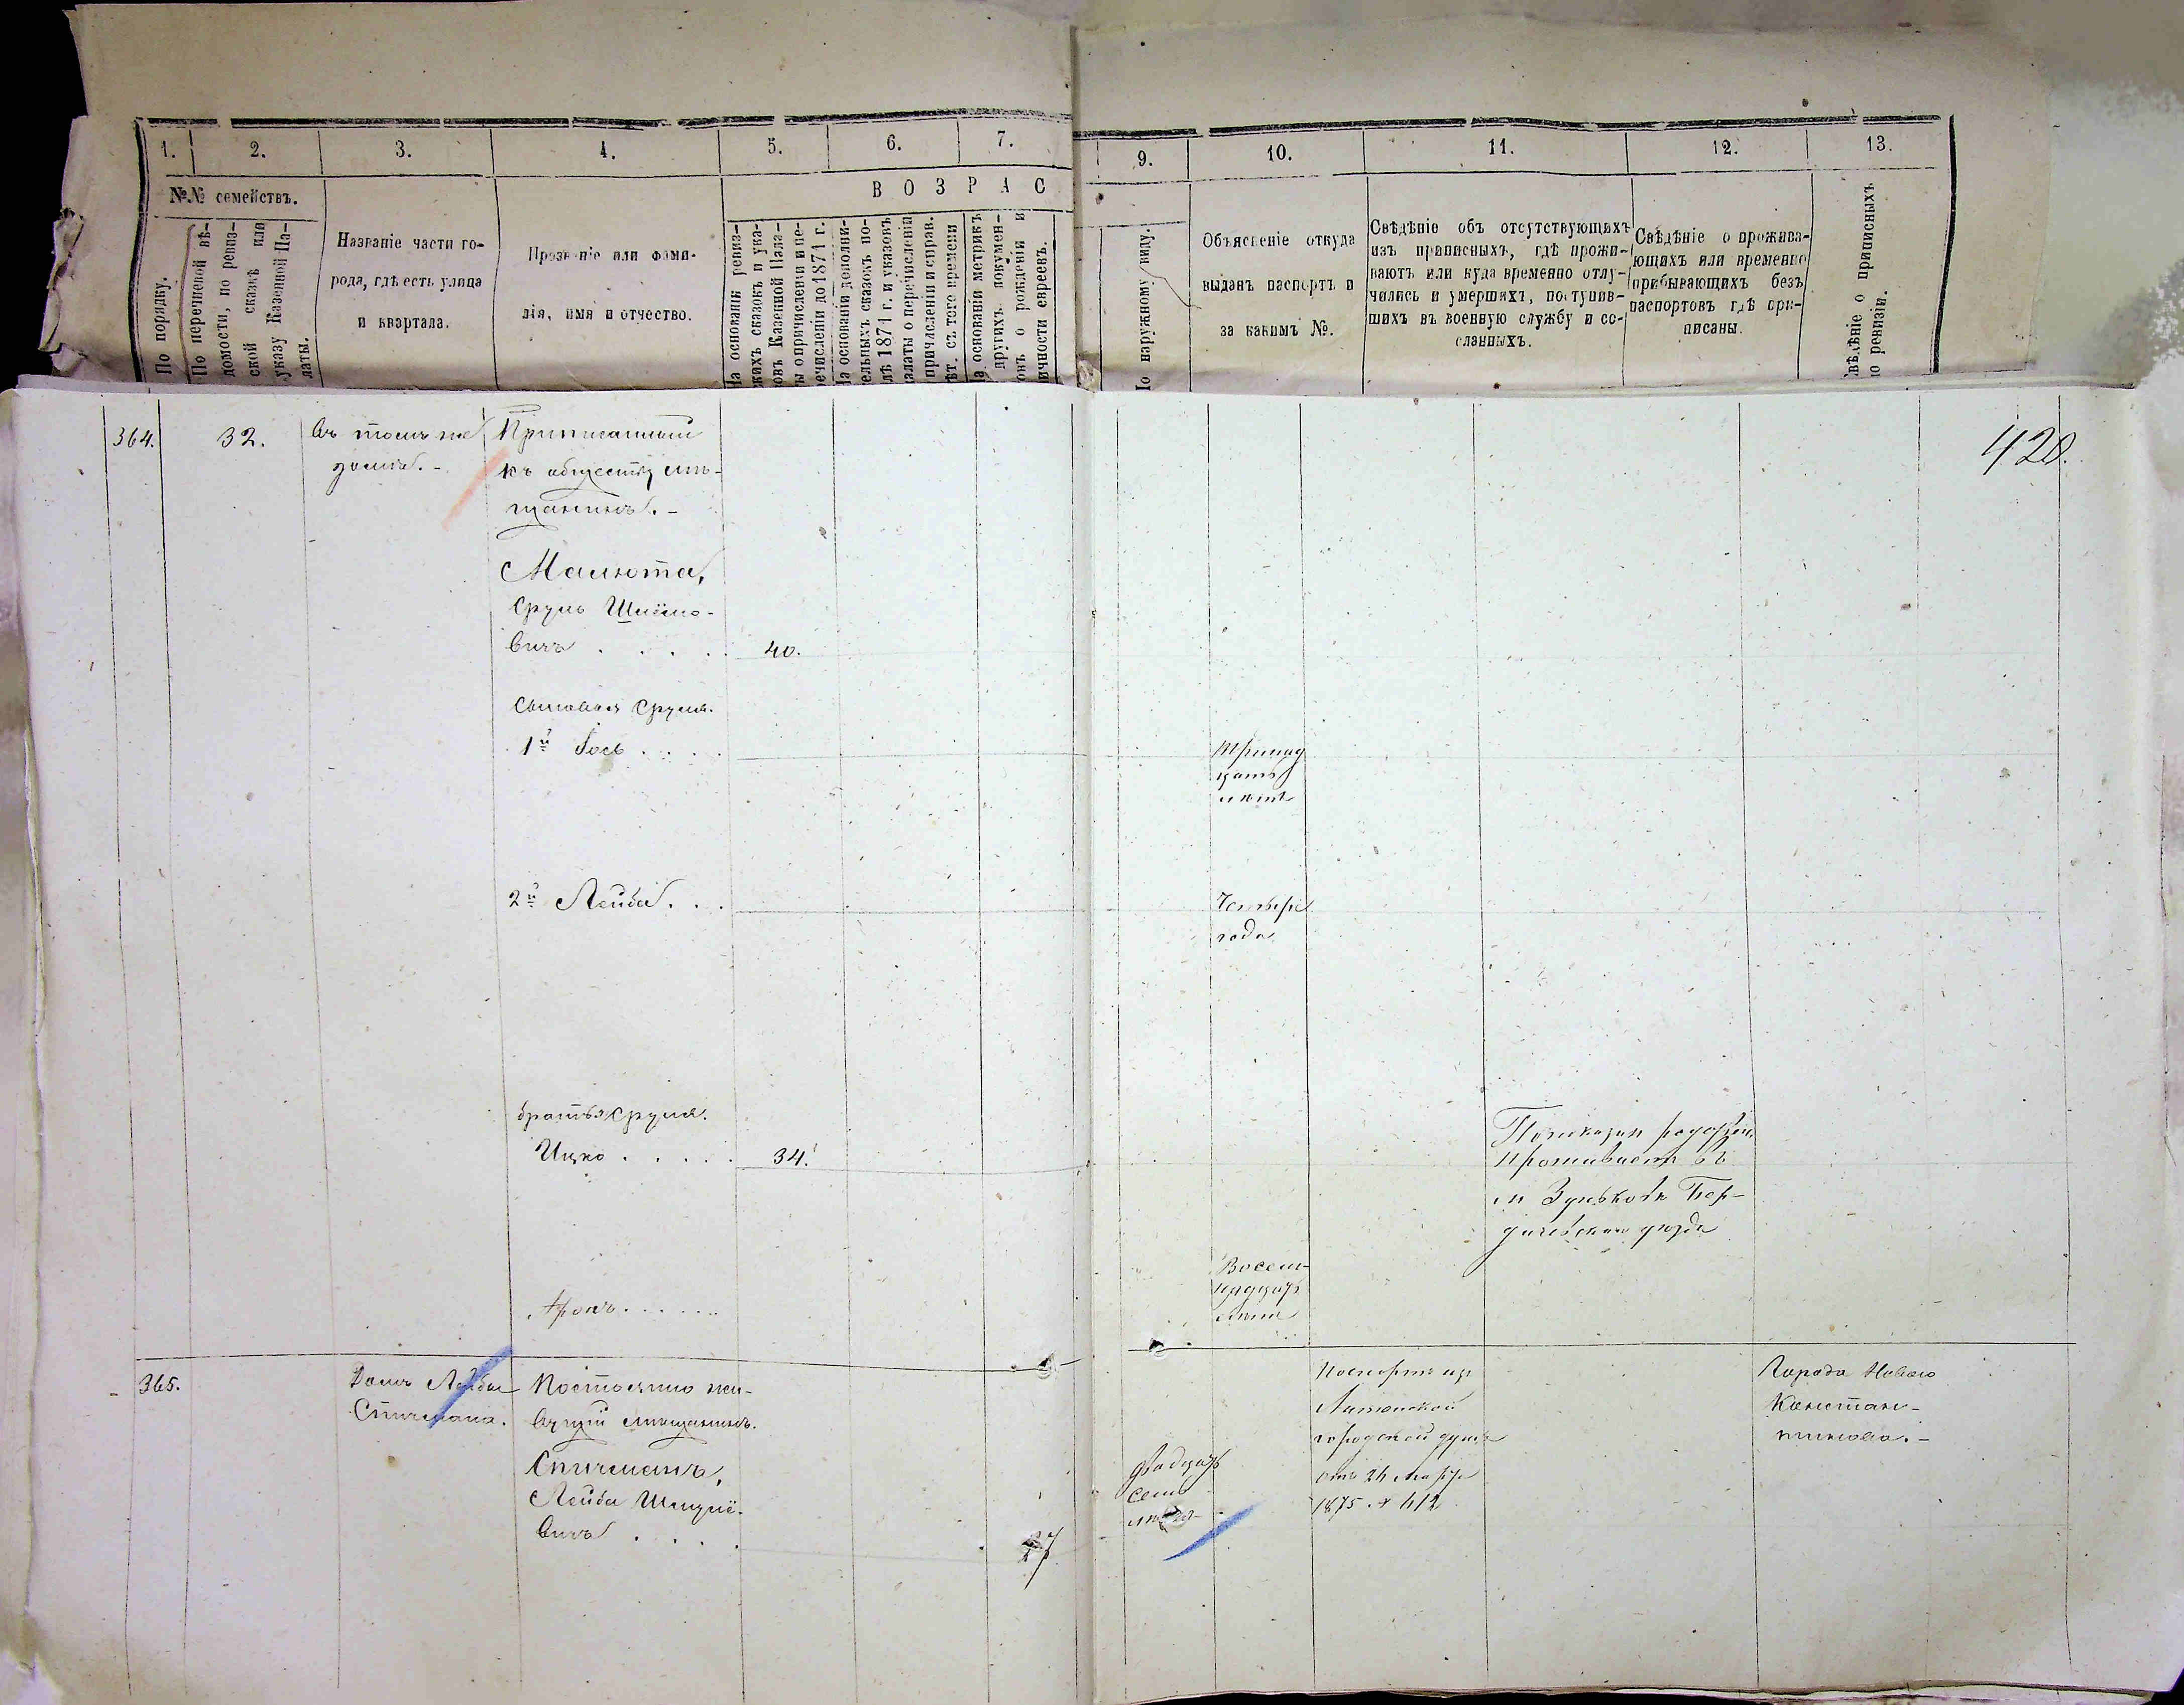 1. 2. 3. 4. 5. 6. 7. 9. 10. 11. 12. 13.
№№ семействъ.
В О З Р А С
По порядку.
По перечневой вѣ-
домости, по ревиз-
ской сказкѣ или
указу Казенной Па-
латы.
Названіе части го-
рода, гдѣ есть улица
и квартала.
Прозваніе или фами-
лія, имя и отчество.
На основаніи ревиз-
скихъ сказокъ и ука-
зовъ Казенной Пала-
ты о причисленіи и пе-
речисленіи до 1871 г.
На основаніи дополни-
тельныхъ сказокъ по-
слѣ 1871 г. и указовъ
палаты о перечисленіи
причисленіи и справ.
лѣт. съ того времени
На основаніи метрикъ
другихъ докумен-
товъ о рожденіи и
личности евреевъ.
По наружному виду.
Объясненіе откуда
выданъ паспортъ и
за какимъ №.
Свѣдѣніе объ отсутствующихъ
изъ приписныхъ, гдѣ прожи-
ваютъ или куда временно отлу-
чились и умершихъ, поступив-
шихъ въ военную службу и со-
сланныхъ.
Свѣдѣніе о прожива-
ющихъ или временно
прибывающихъ безъ
паспортовъ гдѣ при-
писаны.
Свѣдѣніе о приписныхъ
по ревизіи.
420.
364. 32. Въ томъ же
домѣ. -
Приписанный
къ обществу мѣ-
щанинъ. -
Малюта,
Сруль Шлёмо-
вичъ . . . . 40.
Сыновья Сруля.
1й Іось . . . .
Тринад
цать
лѣтъ
2й Лейба . . .
Четыре
года
братья Сруля.
Ицко . . . . . 34.
проживаетъ въ
м Зуньковѣ Бер-
дичевскаго уѣзда
Аронъ . . . . . .
Восем-
надцать
лѣтъ
365. Домъ Лейбы
Спичмана.
Постоянно жи-
вущій мѣщанинъ.
Спичманъ,
Лейба Шмулё-
вичъ . . . . 27
двадцать
семь
лѣтъ
Паспортъ изъ
Литинской
городской думы
отъ 24 марта
1875. № 412
Города Новаго
Констан-
тинова. -